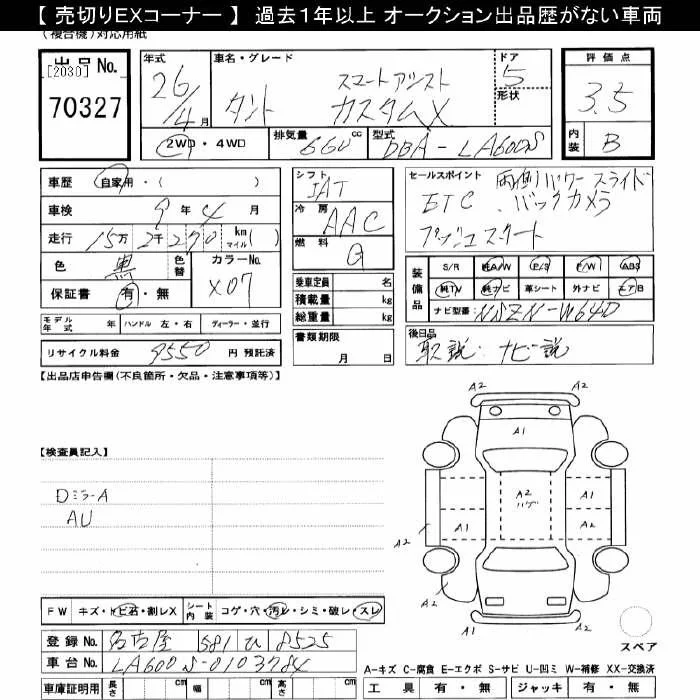 【 売切りEXコーナー 】 過去1年以上 オークション出品歴がない車両
(複合機)対応用紙
出品 No. [2030] 70327
年式 26/4月
車名・グレード タント スマートアシスト カスタムX
ドア 形状 5
評価点 3.5
内装 B
2WD・4WD
排気量 660cc
型式 DBA-LA600S
車歴 自家用・( )
車検 9年4月
走行 15万2千270 km マイル( )
色 黒 色替 カラーNo. X07
保証書 有・無
シフト IAT
冷房 AAC
燃料 G
乗車定員 名
積載量 kg
総重量 kg
書類期限 月 日
セールスポイント 両側パワースライド
ETC、バックカメラ
プッシュスタート
装備品 S/R 純A/W P/S P/W ABS
純TV 純ナビ 革シート 外ナビ エアB
ナビ型番 NSZN-W64D
モデル年式 年 ハンドル 左・右 ディーラー・並行
リサイクル料金 9550 円 預託済
後日品 取説・ナビ説
【出品店申告欄(不良箇所・欠品・注意事項等)】
【検査員記入】
Dミラ-A
AU
A2 A2
A1
A2 ハゲ
A1
A1
A2
A2
A2
A1
A2
スペア
FW キズ・トビ石・割レX シート内装 コゲ・穴・汚レ・シミ・破レ・スレ
登録 No. 名古屋 581 ひ 8525
車台 No. LA600S-0103784
車庫証明用 長さ cm 幅 cm 高さ cm
A-キズ C-腐食 E-エクボ S-サビ U-凹ミ W-補修 XX-交換済
工具 有・無 ジャッキ 有・無